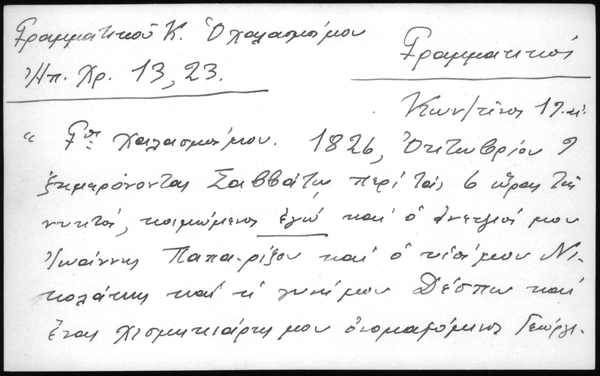 Γραμματικοῦ Κ. Ὁ χαλασμός μου
Ἠπ. Χρ. 13, 23.
Γραμματικός
Κων/τίνος 19. αἰ.
" Γος χαλασμός μου. 1826, Ὀκτωβρίου 9
ξημερόνοντας Σαββάτῳ, περὶ τὰς 6 ὥρας τῆς
νυκτός, κοιμώμενος ἐγώ καὶ ὁ ἀνεψιός μου
Ἰωάννης Παπα-ρίζου καὶ ὁ υἱός μου Νι-
κολάκης καὶ ἡ γυνή μου Δέσπω καὶ
ἕνας χισμηκιάρης μου ὀνομαζόμενος Γεώργι-